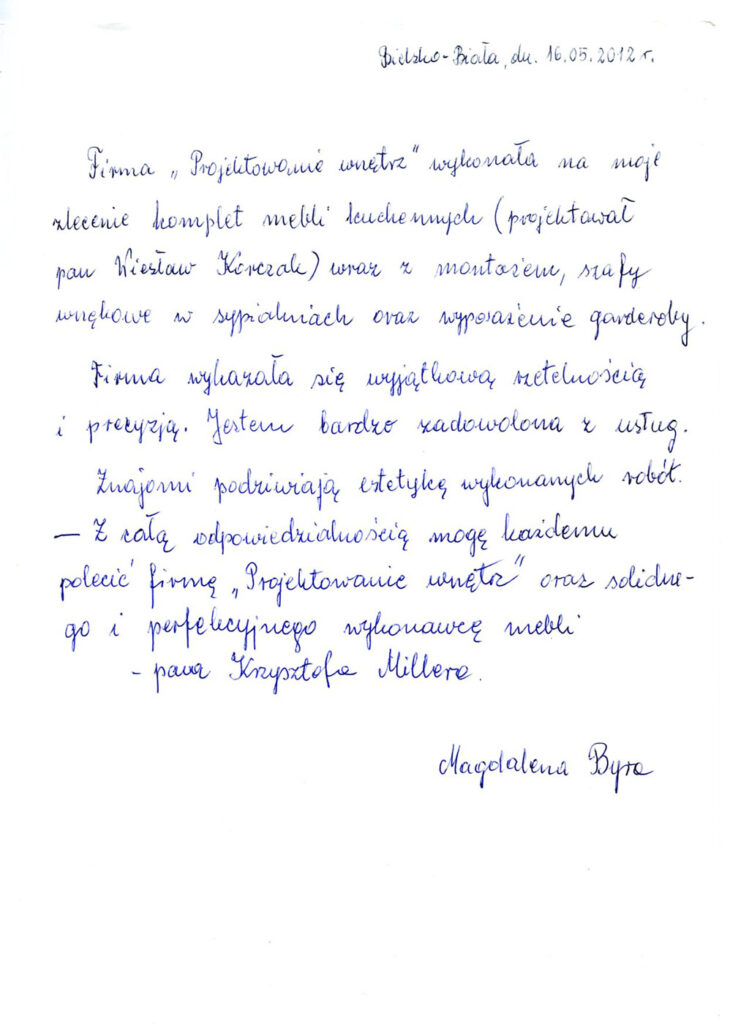 Bielsko-Biała, dn. 16.05.2012 r.
Firma „Projektowanie wnętrz" wykonała na moje
zlecenie komplet mebli kuchennych (projektował
pan Wiesław Korczak) wraz z montażem, szafy
wnękowe w sypialniach oraz wyposażenie garderoby.
Firma wykazała się wyjątkową rzetelnością
i precyzją. Jestem bardzo zadowolona z usług.
Znajomi podziwiają estetykę wykonanych robót.
— Z całą odpowiedzialnością mogę każdemu
polecić firmę „Projektowanie wnętrz" oraz solidne-
go i perfekcyjnego wykonawcę mebli
- pana Krzysztofa Millera.
Magdalena Byra